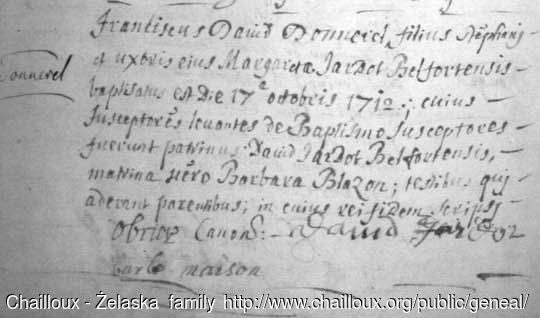 Franciscus David Donnerel, filius Stephanij
Donnerel
& uxoris eius Margaretæ Jardot Belfortensis
baptisatus est die 17ª octobris 1712; cuius
susceptores levantes de Baptismo susceptores
fuerunt patrinus David Jardot Belfortensis,
matrina vero Barbara Blazon; testibus qui
aderant parentibus; in cuius rei fidem scripsi
Canon:
David
barbe
Chailloux - Żelaska family http://www.chailloux.org/public/geneal/